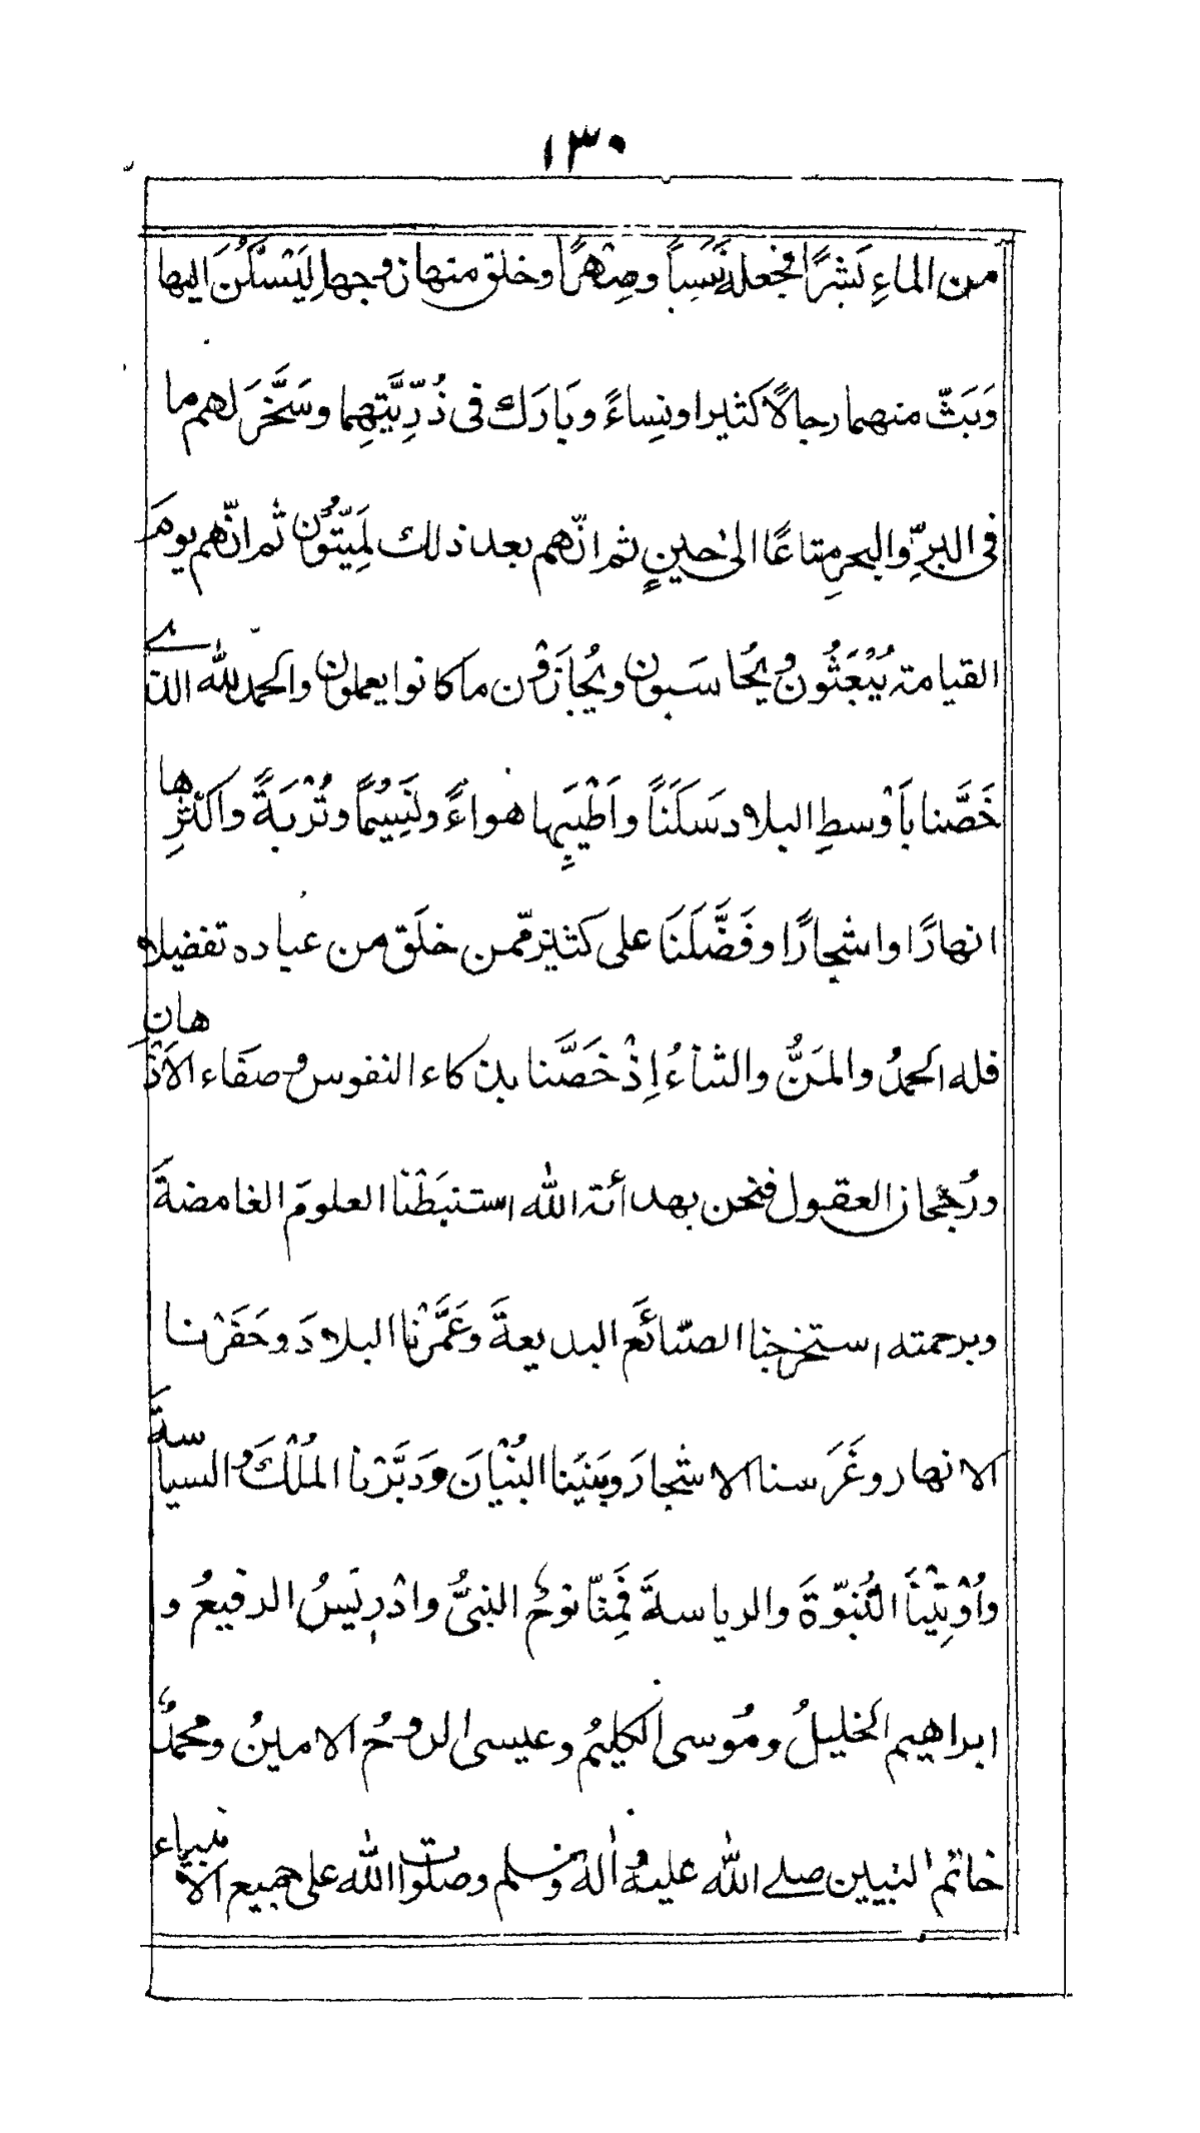 ١٣٠
من الماءِ بَشرًا فجعله نَسَباً وصِهْرًا وخلق منها زوجها لِيَسْكُنَ اليها
وَبَثّ منهما رجالًا كثيرا ونِساءً وبَارَك فى ذُرِّيَّتِهِما وسَخَّرَ لهم ما
فى البرِّ والبحرِ متاعًا الىٰ حينٍ ثم انّهم بعد ذلك لَمَيِّتُون ثم انّهم يومَ
القيامة يُبْعَثُون ويُحاسَبون ويُجَازَوْن ما كانوا يعملون والحمد لله الذے
خَصَّنا بَاَوْسطِ البلاد سَكَنَاً واَطْيَبِها هواءً ونَسِيْمًا وتُرْبَةً واكثرِها
انهارًا واشجارًا وفَضَّلَنَا على كثير ممن خلَق من عباده تفضيلا
فله الحمدُ والمَنُّ والثناءُ اِذْ خَصَّنا بذكاء النفوس وصفَاء الاَذْهان
ورُجحان العقول فنحن بهدائة الله استنبَطْنا العلومَ الغامضةَ
وبرحمته استخرجنا الصّنائَع البديعةَ وعَمَّرْنا البلادَ وحَفَرْنا
الانهار وغَرَسنا الاشجارَ وبَنَينا البُنْيَانَ ودَبَّرْنا المُلْكَ والسياسةَ
واُوْتِيْنَا النُبوّةَ والرياسةَ فَمِنّا نوحٌ النبىُّ وادْرِيَسُ الرفيعُ و
ابراهيم الخليلُ ومُوسى الكليمُ وعيسى الروحُ الامينُ ومحمدٌ
خاتم النبيين صلے الله عليه واٰله وسلم وصلوات الله على جميع الانبياء